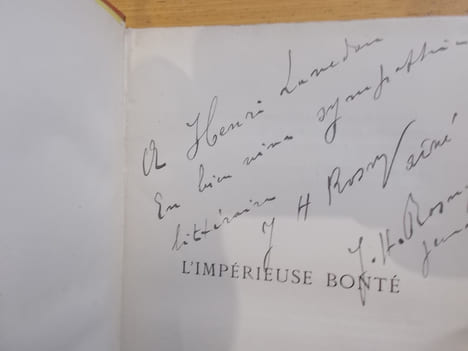 A Henri Lavedan
En bien vive sympathie
littéraire
J H Rosny aîné
J.-H. Rosny
jeune
L'IMPÉRIEUSE BONTÉ